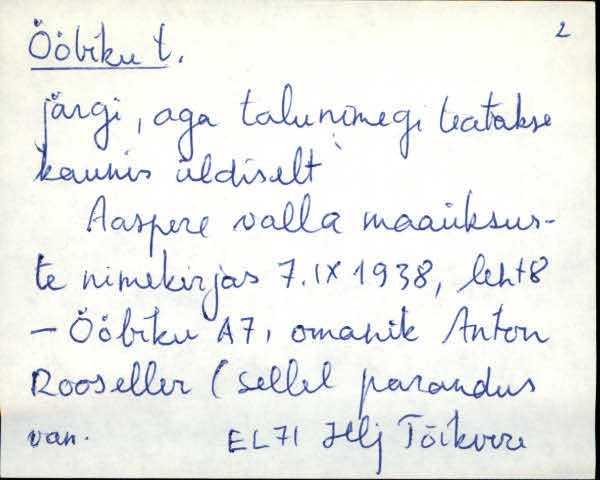 Ööbiku t. 2
järgi, aga talunimegi teatakse
kaunis üldiselt
Aaspere valla maaüksus-
te nimekirjas 7.IX 1938, leht 8
– Ööbiku A7, omanik Anton
Rooseller (sellel parandus
van. EL71